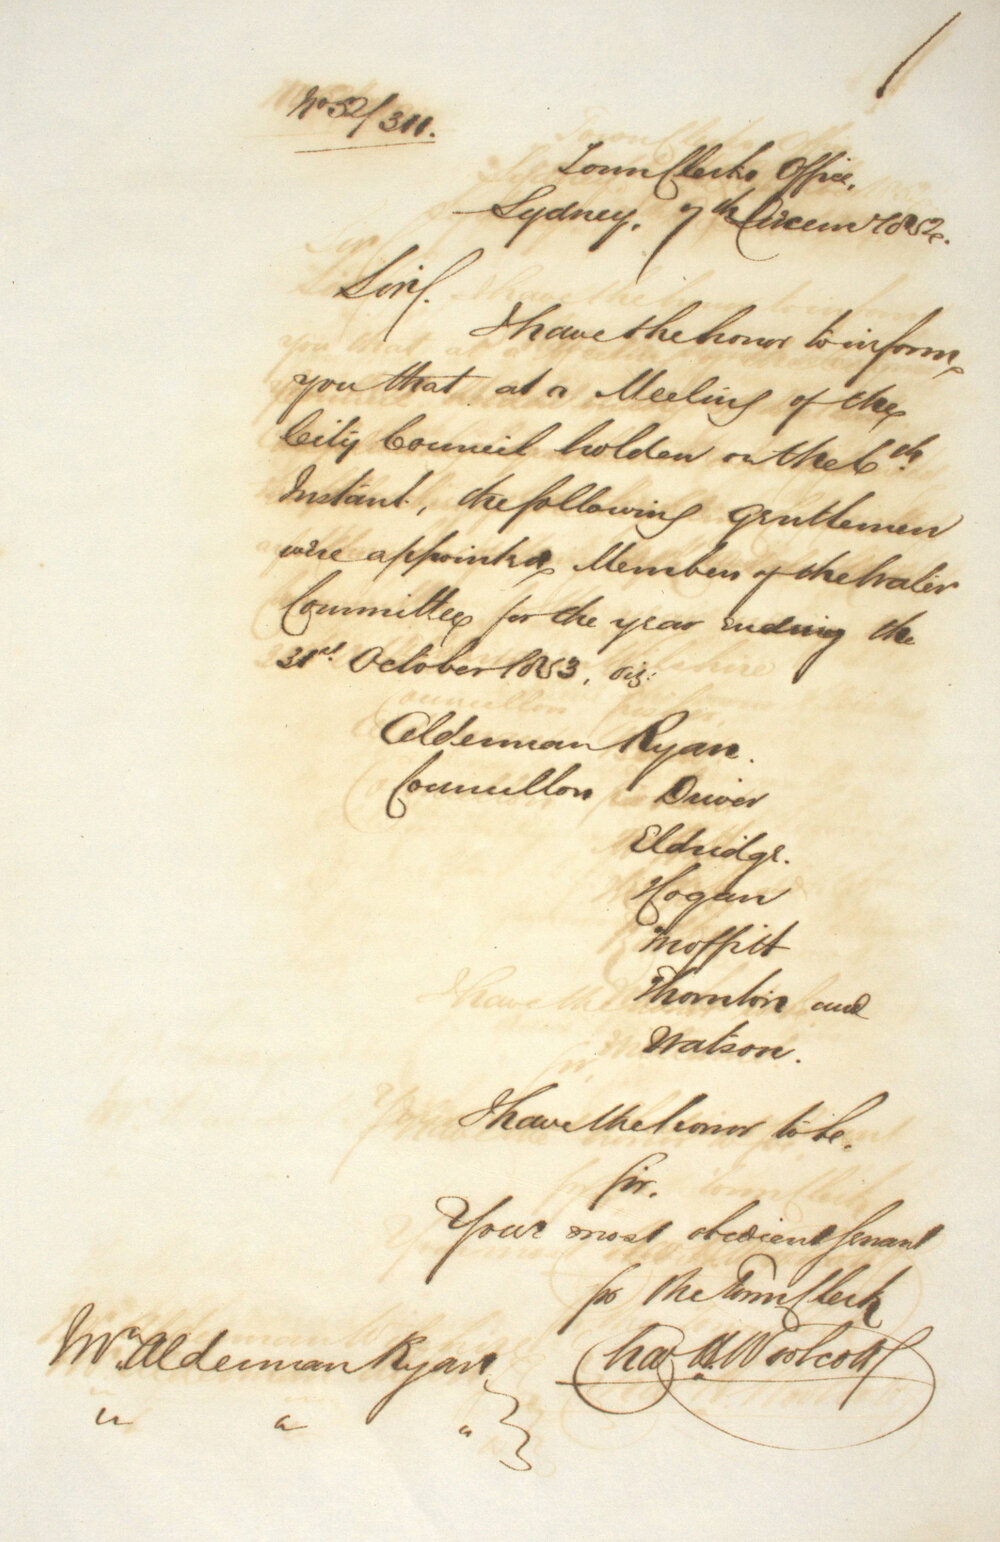 No 52/311.
Town Clerks Office,
Sydney, 7th December 1852.
Sir,
I have the honor to inform
you that at a Meeting of the
City Council holden on the 6th
Instant, the following gentlemen
were appointed Members of the Water
Committee for the year ending the
31st October 1853, viz:
Alderman Ryan.
Councillors Driver
Eldridge.
Hogan
Moffitt
Thornton and
Watson.
I have the honor to be.
Sir.
Your most obedient Servant
for the Town Clerk
Chas H. Woolcott
Mr. Alderman Ryan
" " "